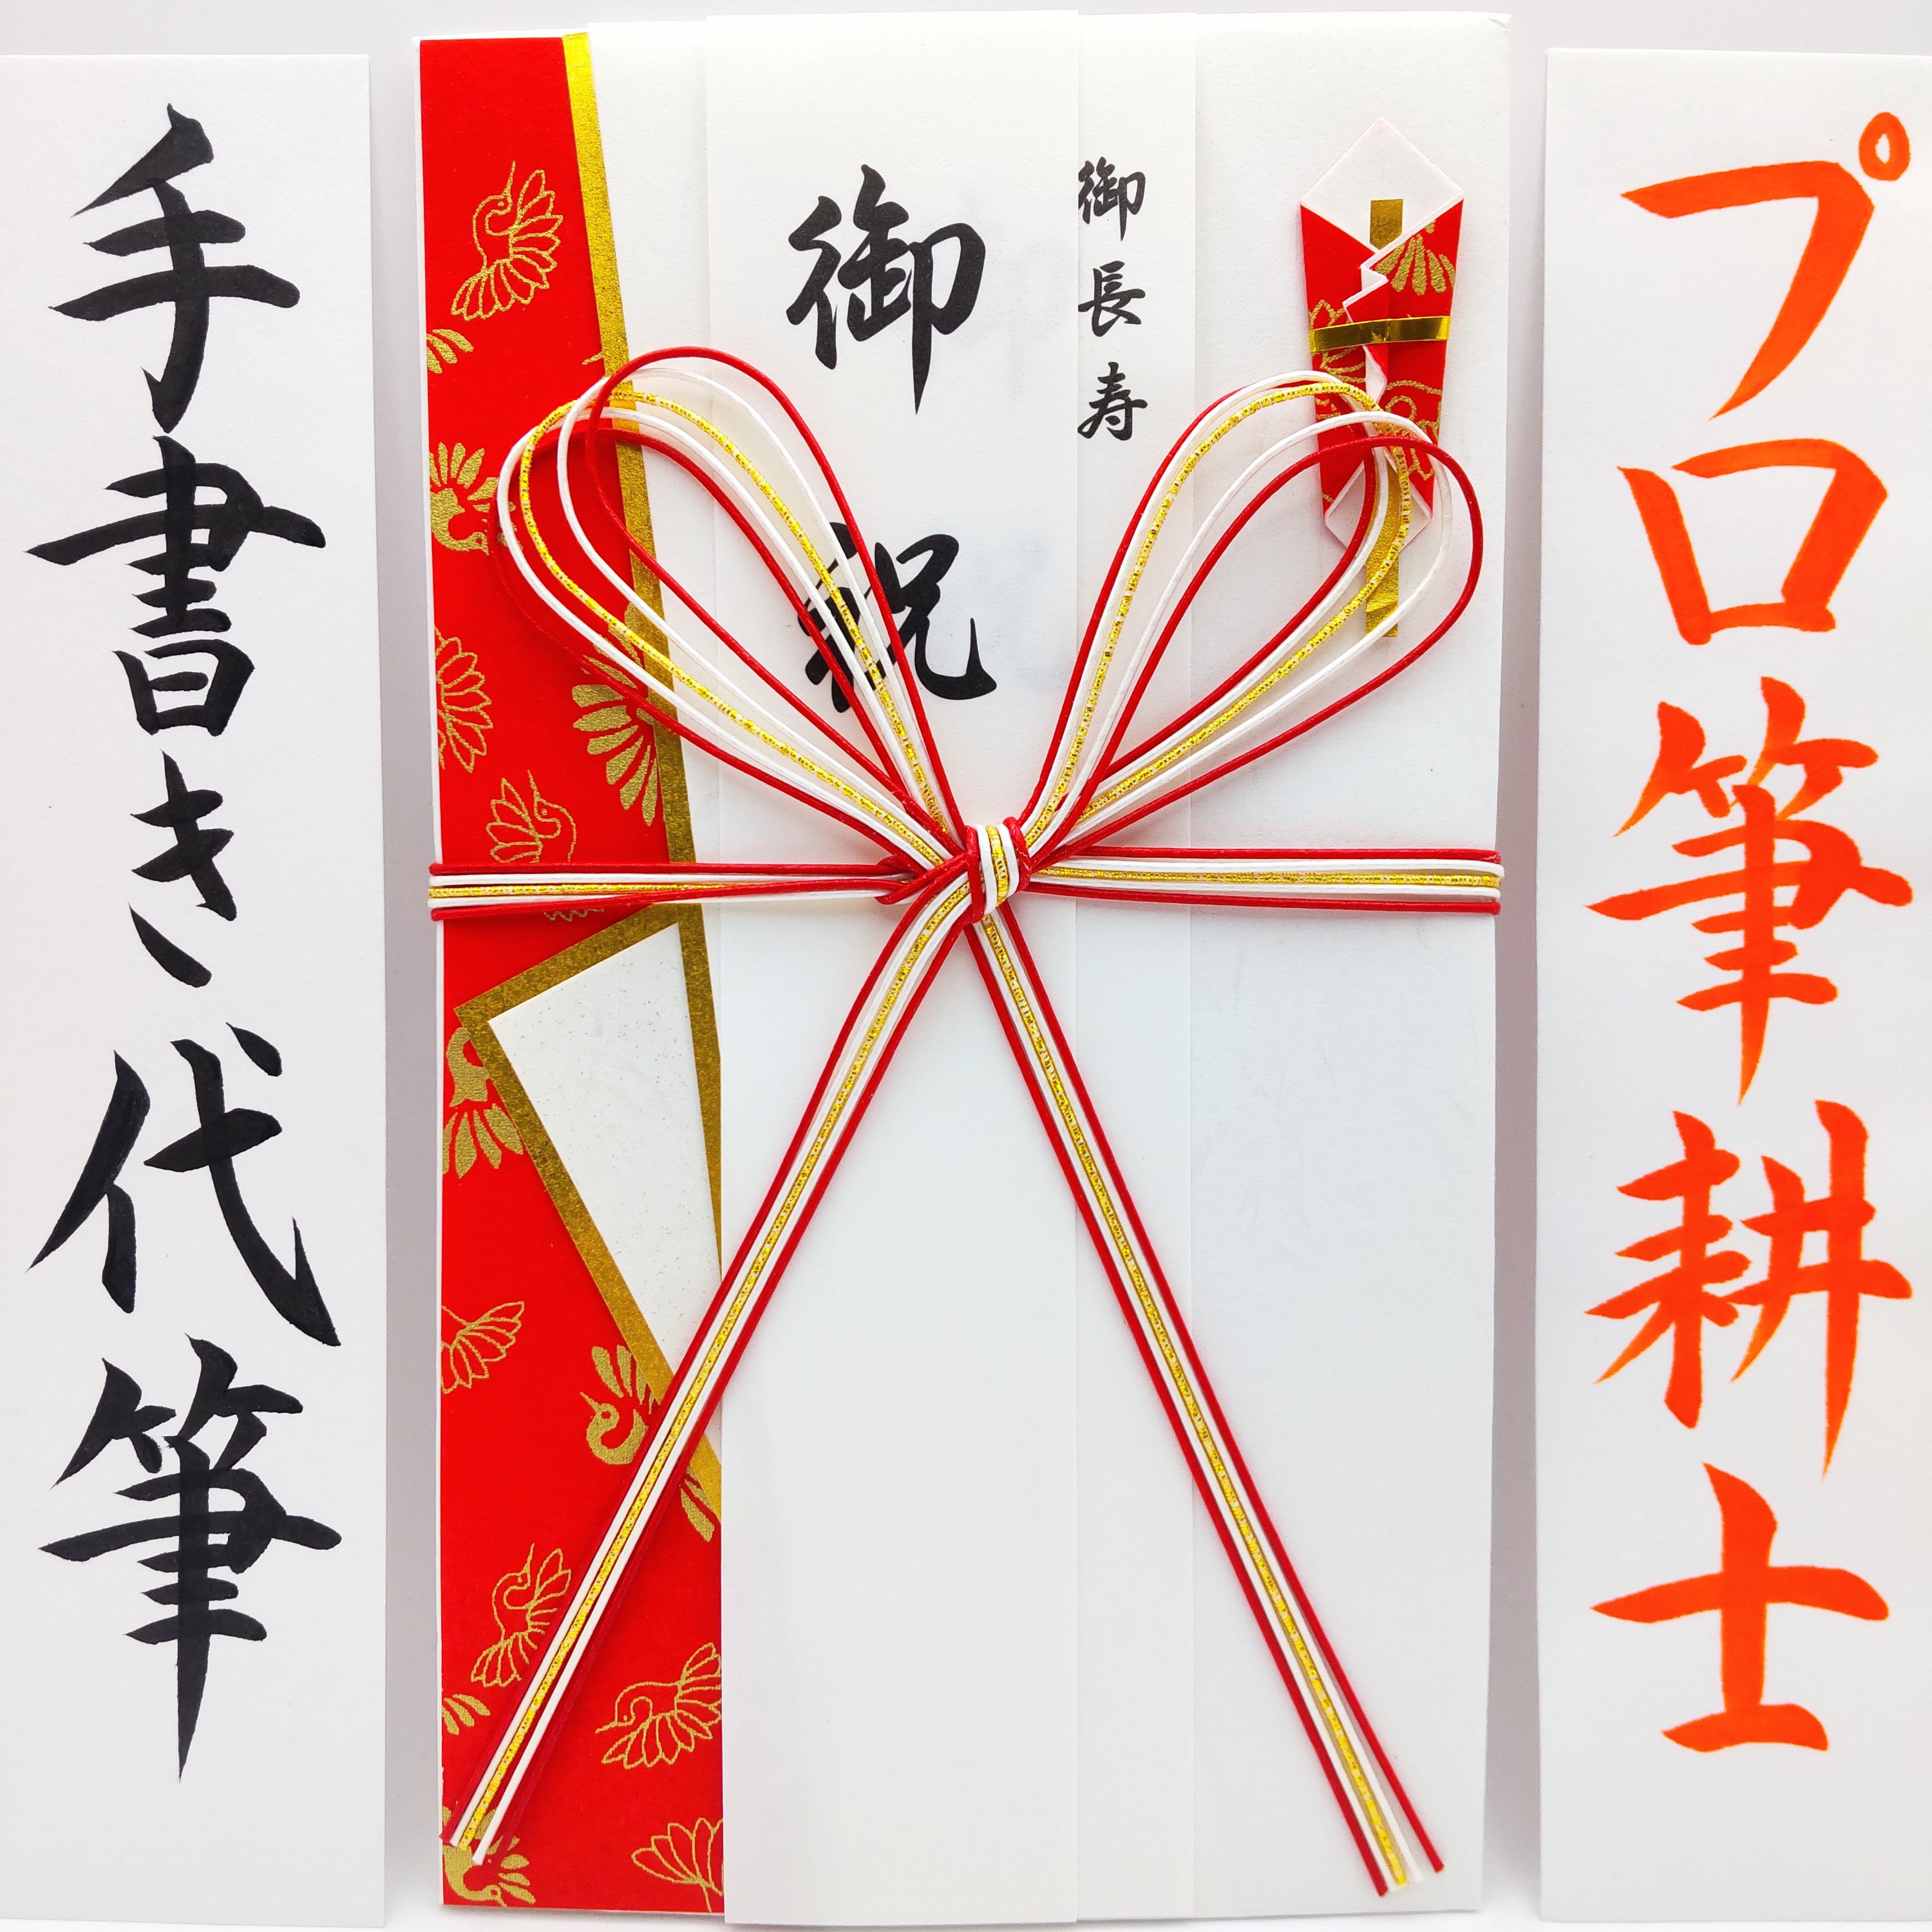 プロ筆耕士
御長寿
御祝
手書き代筆